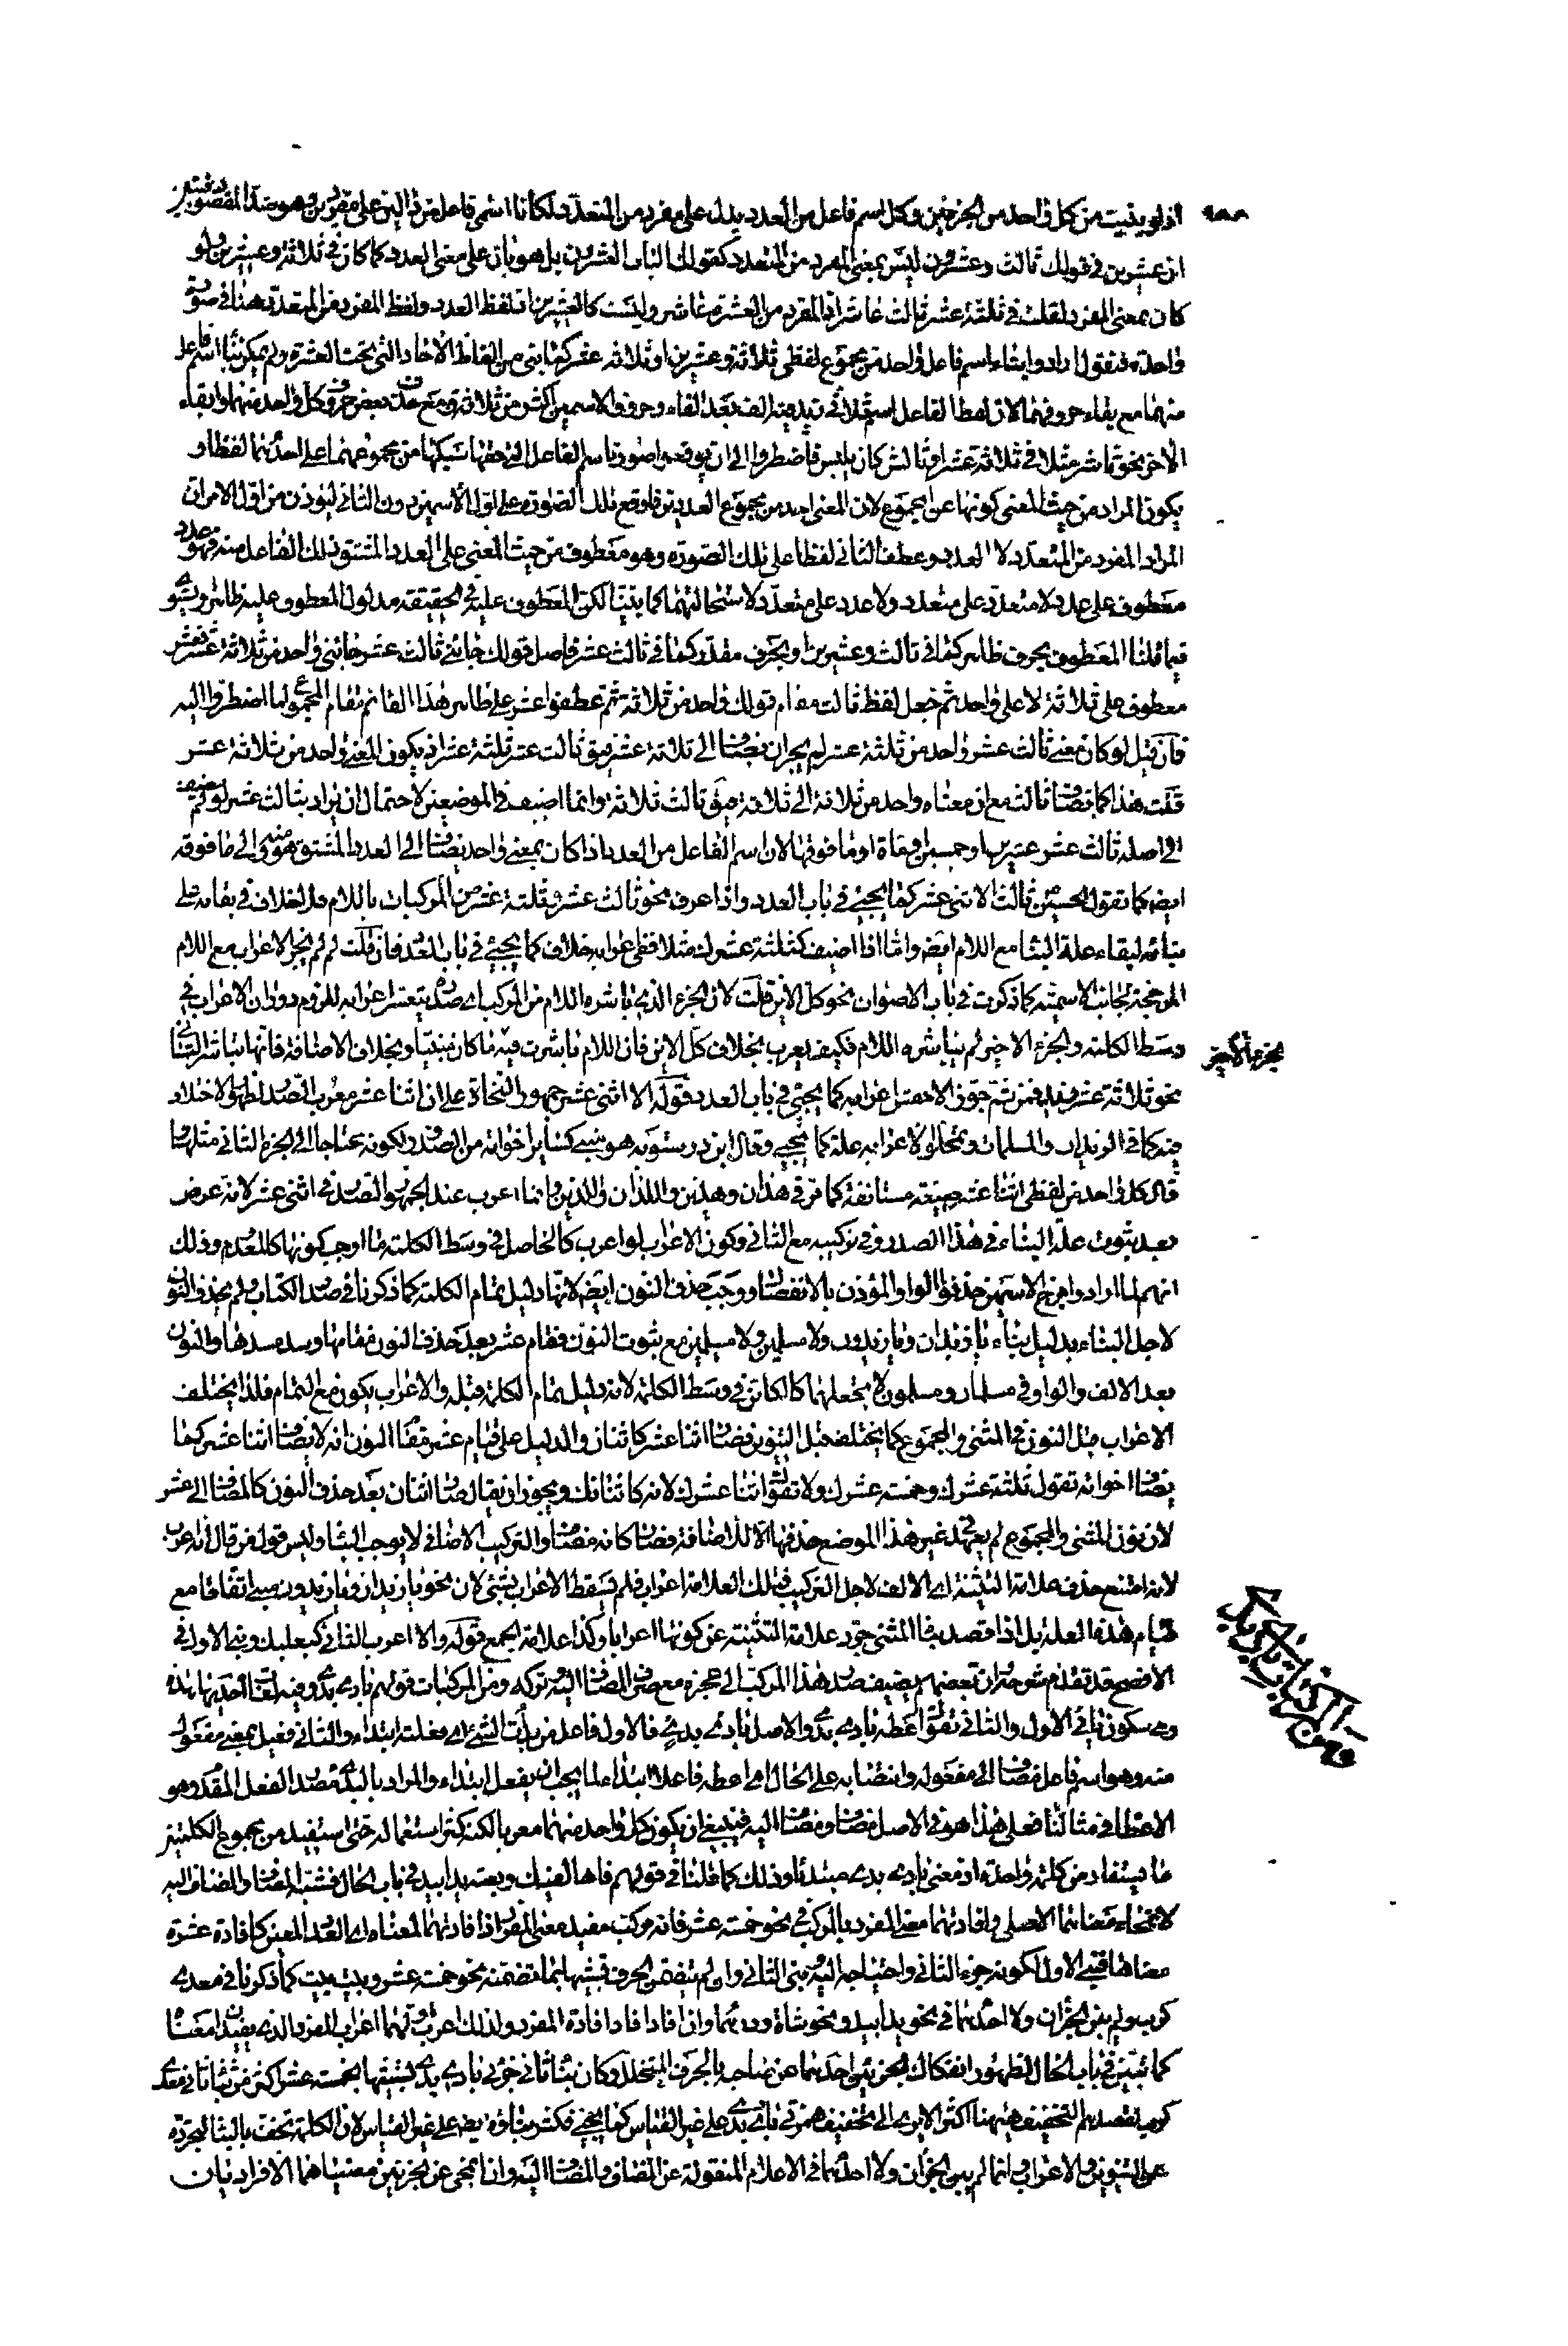 اذ لو بنيت من كل واحد من الجزئين وكل اسم فاعل من العدد يدل على مفرد من المتعدد لكانا اسمى فاعل من ثالين على مفردين وهو ضد المقصود
ان عشرين فى قولك ثالث وعشرون ليس بمعنى المفرد من المتعدد كقولك الباب العشرون بل هو باق على معنى العدد كما كان فى ثلاثة وعشرين ولو
كان بمعنى المفرد لقلت فى ثلثة عشر ثالث عاشر اذ المفرد من العشرة عاشر وليست كالعشرين اذ لفظ العدد ولفظ المفرد من المتعدد هنا فى صورة
واحدة فنقول ارادوا بناء اسم فاعل واحد من مجموع لفظى ثلاثة وعشرين او ثلاثة عشر كما بنى من الفاظ الآحاد التى تحت العشرة ولم يمكن بناء اسم فاعل
منهما مع بقاء حروفهما لان لفظ الفاعل اسم ثلاثى زيد فيه الف بعد الفاء وحروف الاسمين اكثر من ثلاثة ومع حذف بعض حروف كل واحد منهما وابقاء
الآخر نحو ثاشر مثلا فى ثلاثة عشر او ثالش كان يلبس فاضطروا الى ان يوقعوا صورة اسم الفاعل التى حقها سبكها من مجموعهما على احدهما لفظا و
يكون المراد من حيث المعنى كونها من المجموع لان المعنى احد من مجموع العددين فاوقع تلك الصورة على اول الاسمين دون الثانى ليؤذن من اول الامر ان
المراد المفرد من المتعدد لا العدد وعطف الثانى لفظا على تلك الصورة وهو معطوف من حيث المعنى على العدد المشتق ذلك الفاعل منه فهو عدد
معطوف على عدد لا متعدد على متعدد ولا عدد على متعدد لاستحالتهما كما بينا لكن المعطوف عليه فى الحقيقة مدلول المعطوف عليه ظاهرا ويستوى
فيما قلنا المعطوف بحرف ظاهر كما فى ثالث وعشرين او بحرف مقدر كما فى ثالث عشر فاصل قولك جائنى ثالث عشر جائنى واحد من ثلاثة عشر فعشر
معطوف على ثلاثة لا على واحد ثم جعل لفظ ثالث مقام قولك واحد من ثلاثة ثم عطفوا عشر على ظاهر هذا القائم مقام المجموع لما اضطروا اليه
فان قيل لو كان معنى ثالث عشر واحد من ثلثة عشر لم يجز ان يضاف الى ثلاثة عشر فيق ثالث عشر ثلثة عشر اذ يكون المعنى واحد من ثلاثة عشر
قلت هذا كما يضاف ثالث مع ان معناه واحد من ثلاثة الى ثلاثة فيق ثالث ثلاثة وانما اضيف فى الموضعين لاحتمال ان يراد بثالث عشر لو لم يضف
الى اصله ثالث عشر عشرين او خمسين او مأة او ما فوقها لان اسم الفاعل من العدد اذا كان بمعنى واحد يضاف الى العدد المشتق هو منه والى ما فوقه
ايض كما تقول الحسين ثالث الاثنى عشر كما يجئ فى باب العدد واذا عرف نحو ثالث عشر وثلثة عشر من المركبات باللام فلا خلاف فى بقائه على
بنائه لبقاء علة البناء مع اللام ايض واما اذا اضيف كثلثة عشرك مثلا ففى اعرابه خلاف كما يجئ فى باب العدد فان قلت لم لم يجز الاعراب مع اللام
المرجحة لجانب الاسمية كما ذكرت فى باب الاصوات نحو كل الاين قلت لان الجزء الذى باشره اللام من المركب اى صدره يتعسر اعرابه للزوم دوران الاعراب فى
وسط الكلمة والجزء الاخير لم يباشره اللام فكيف يعرب بخلاف كل الاين فان اللام باشرت فيه ما كان مبنيا وبخلاف الاضافة فانها تباشر الثانى
الجزء الاخير
نحو ثلاثة عشر زيد فمن ثم جوز الاخفش اعرابه كما يجئ فى باب العدد قوله الا اثنى عشر جمهور النحاة على ان اثنا عشر معرب الصدر لظهور الاختلاف
فيه كما فى الزيدان والمسلمان ومحلوا لاعرابه علة كما يجئ وقال ابن درستويه هو مبنى كسائر اخواته من الصدور لكونه محتاجا الى الجزء الثانى مثلها و
قال كل واحد من لفظى اثنا عشر صيغة مستانفة كما مر فى هذان وهذين واللذان واللذين وانما اعرب عند الجمهور الصدر فى اثنى عشر لانه عرض
بعد ثبوت علة البناء فى هذا الصدر وفى تركيبه مع الثانى وكون الاعراب لو اعرب كالحاصل فى وسط الكلمة ما اوجب كونها كالمعدوم وذلك
انهم لما ارادوا مزج الاسمين حذفوا الواو المؤذن بالانفصال ووجب حذف النون ايض لانها دليل تمام الكلمة كما ذكرنا فى صدر الكتاب ولم يحذف النون
لاجل البناء بدليل بناء يا زيدان ويا زيدون ولا مسلمين ولا مسلمين مع ثبوت النون فقام عشر بعد حذف النون مقامها وسد مسدها والنون
بعد الالف والواو فى مسلمان ومسلمون لم يجعلهما كالكائن فى وسط الكلمة لانه دليل تمام الكلمة قبله والاعراب يكون مع التمام فلذا يختلف
الاعراب قبل النون فى المثنى والمجموع كما يختلف قبل التنوين فصار اثنا عشر كاثنان والدليل على قيام عشر مقام النون انه لا يضاف اثنا عشر كما
يضاف اخواته تقول ثلثة عشرك وخمسة عشرك ولا تقول اثنا عشرك لانه كاثنانك ويجوز ان يقال صار اثنان بعد حذف النون كالمضاف الى عشر
لان نون المثنى والمجموع لم يعهد غير هذا الموضع حذفها الا للاضافة فصار كانه مضاف والتركيب الاضافى لا يوجب البناء وليس قول من قال انه اعرب
لانه امتنع حذف علامة التثنية اى الالف لاجل التركيب فتلك العلامة اعراب فلم يسقط الاعراب بشئ لان نحو يا زيدان ويا زيدون مبنى اتفاقا مع
قيام هذه العلة بل اذا قصد بناء المثنى جرد علامة التثنية عن كونها اعرابا وكذا علامة الجمع قوله والا اعرب الثانى كبعلبك وبنى الاول فى
الافصح قد تقدم شرحه وان بعضهم يضيف صدر هذا المركب الى عجزه مع صرف المضاف اليه وتركه ومن المركبات قولهم بادى بدى وفيه لغات احديها هذه
وهى سكون يائى الاول والثانى تقول اعطه بادى بدى والاصل بادئ بدئ فالاول فاعل من بدأت الشئ اى فعلته ابتداء والثانى فعيل بمعنى مفعول
منه وهو اسم فاعل مضاف الى مفعوله وانتصابه على الحال اى اعطه فاعلا ابتداء لما يجب ان يفعل ابتداء والمراد بالبدئ مصدر الفعل المقدم وهو
الاعطا فى مثالنا فعلى هذا هو فى الاصل مضاف ومضاف اليه فينبغى ان يكون كل واحد منهما معربا لكنه كثر استعماله حتى استفيد من مجموع الكلمتين
ما يستفاد من كلمة واحدة اذ معنى بادى بدى مبتدئا وذلك كما قلنا فى قولهم فاها لفيك وبعته يدا بيد فى باب الحال فشبه المضاف والمضاف اليه
لانمحاء معناهما الاصلى وافادتهما معنى المفرد بالمركب فى نحو خمسة عشر فانه مركب مفيد معنى المفرد اذ افادتهما لمعناه اى العدد المعين كافادة عشرة
معناها فبنى الاول لكونه جزء الثانى واحتياجه اليه وبنى الثانى وان لم يتضمن الحرف تشبيها بما تضمنه نحو خمسة عشر وبيت بيت كما ذكرنا فى معدى
كرب ولم يبن الجزآن ولا احدهما فى نحو يدا بيد ونحو شاة ودرهما وان افادا فادا افادة المفرد ولذلك اعرب اولهما اعراب المفرد الذى يفيدان معناه
كما تبين فى باب الحال لظهور انفكاك الجزئين احدهما عن صاحبه بالحرف المتخلل وكان بناء ثانى جزئى بادى بدى تشبيها بخمسة عشر اكثر من بناء ثانى معدى
كرب لقصدهم التخفيف ههنا اكثر الا يرى الى تخفيف همزتى بادى بدى على غير القياس كما يجئ فكثر بناؤه ايض على غير القياس لان الكلمة تخف بالبناء لتجرده
عن التنوين والاعراب وانما لم يبن الجزآن ولا احدهما فى الاعلام المنقولة عن المضاف والمضاف اليه وان انمحى عن الجزئين معنياهما الافراديان